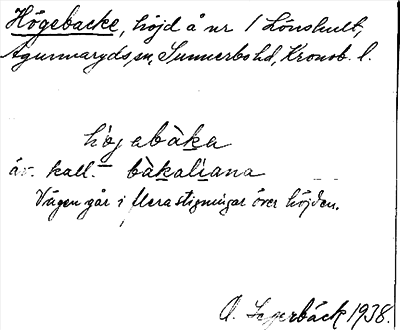 Högebacke, höjd å nr 1 Lönshult,
Agunnaryds sn, Sunnerbo hd, Kronob. l.
högabàka
äv. kall. bàkaliana
Vägen går i flera stigningar över höjden.
O. Segerbäck 1938.